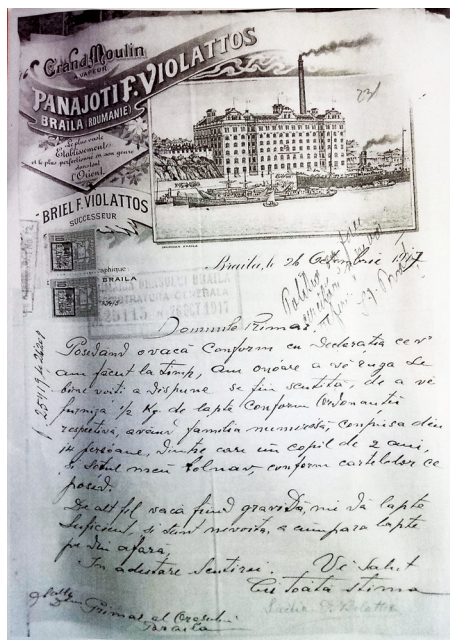 Grand Moulin
A VAPEUR
PANAJOTI F. VIOLATTOS
BRAÏLA (ROUMANIE)
Le plus vaste
Etablissement
et le plus perfectionné en son genre
dans tout
l'Orient
BRIEL F. VIOLATTOS
SUCCESSEUR
graphique
BRAILA
Braila, le 26 Octombrie 1917
PRIMARIA ORASULUI BRAILA
REGISTRATURA GENERALA
25115
26 OCT 1917
Domnule Primar,
Posedând o vacă conform cu Declaratia ce v'
am făcut la timp, am onoare a vĕ ruga se
bine voiti a dispune se fiu scutită, de a vĕ
furniza 1/2 Kg. de lapte conform Ordonantii
respectivă, avȃnd familia numeroasă, compusa din
14 persoane, dintre care un copil de 2 ani,
si sotul meu bolnav, conform cartilolor ce
posed.
De alt fel vacă fiind gravidă, nu dă lapte
suficient, si sunt nevoită, a cumpara lapte
pe din afară,
In adestare scutirei. Vĕ salut
Cu toată stima
Primar al Orasului
Braila